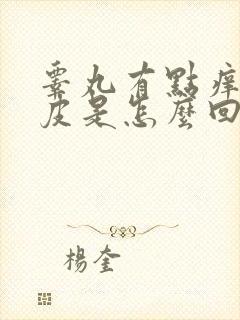 睾丸有點癢
皮是怎麼回
楊奎